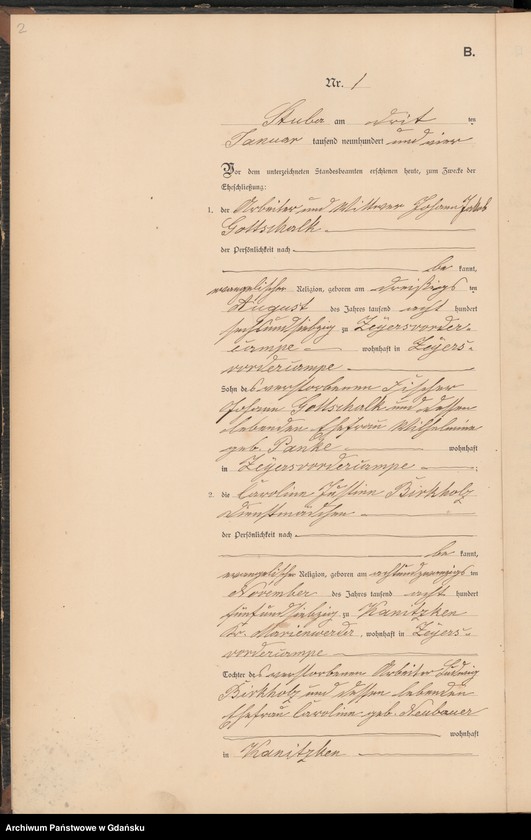 2
B.
Nr. 1
Stuba am drit ten
Januar tausend neunhundert und vier
Vor dem unterzeichneten Standesbeamten erschienen heute, zum Zwecke der
Eheschließung:
1. der Arbeiter und Wittwer Johann Jakob
Gottschalk
der Persönlichkeit nach
be kannt,
evangelischer Religion, geboren am dreißigs ten
August des Jahres tausend acht hundert
sechsundsiebzig zu Zeyersvorder-
campe wohnhaft in Zeyers-
vordercampe
Sohn des verstorbenen Fischer
Johann Gottschalk und dessen
lebenden Ehefrau Wilhelmine
geb. Panke wohnhaft
in Zeyersvordercampe ;
2. die Caroline Justine Birkholz
Dienstmädchen
der Persönlichkeit nach
be kannt,
evangelischer Religion, geboren am achtundzwanzigs ten
November des Jahres tausend acht hundert
fünfundsiebzig zu Kanitzken
Kr. Marienwerder, wohnhaft in Zeyers-
vordercampe
Tochter des verstorbenen Arbeiter Ludwig
Birkholz und dessen lebenden
Ehefrau Caroline geb. Neubauer
wohnhaft
in Kanitzken
Archiwum Państwowe w Gdańsku